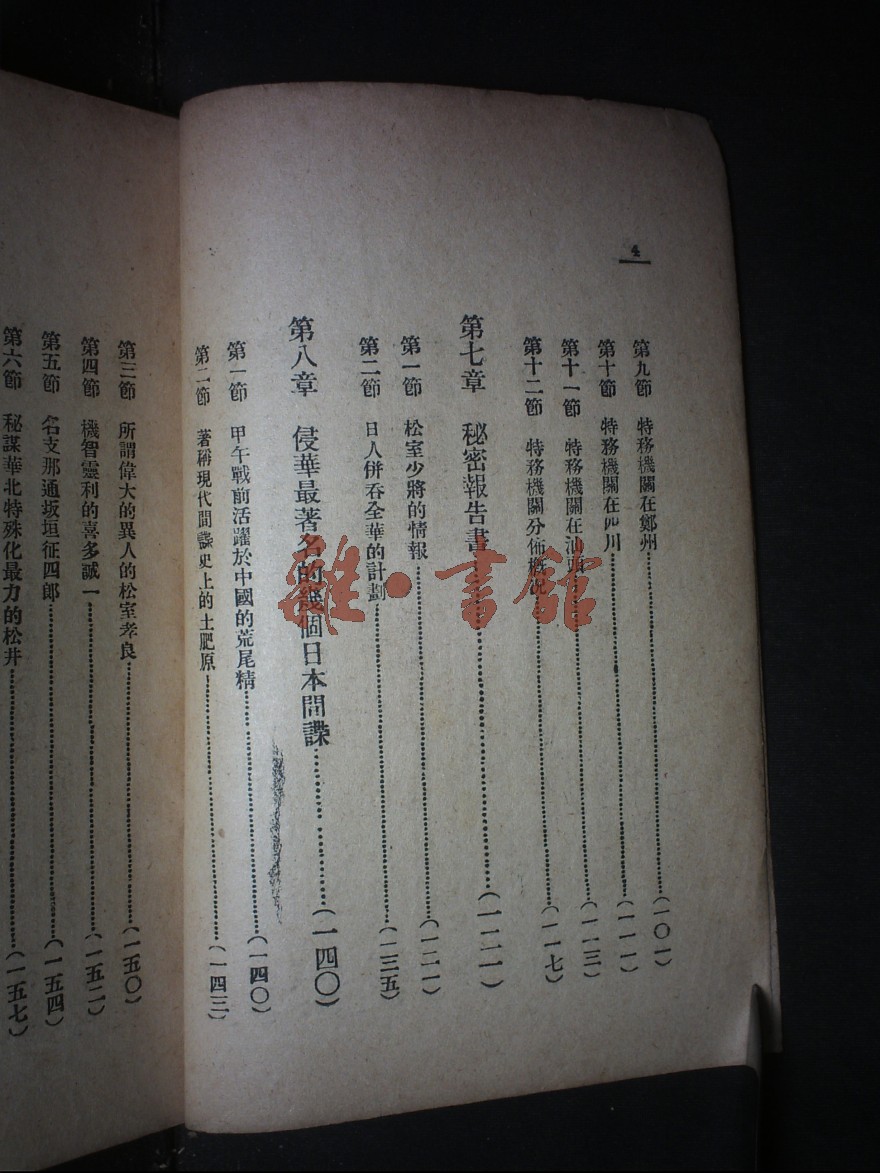 4
第九節　特務機關在鄭州…………（一〇一）
第十節　特務機關在四川…………（一一一）
第十一節　特務機關在汕頭…………（一一三）
第十二節　特務機關分佈概況…………（一一七）
第七章　秘密報告書…………（一二一）
第一節　松室少將的情報…………（一二一）
第二節　日人併吞全華的計劃…………（一三五）
第八章　侵華最著名的幾個日本間諜…………（一四〇）
第一節　甲午戰前活躍於中國的荒尾精…………（一四〇）
第二節　著稱現代間諜史上的土肥原…………（一四三）
第三節　所謂偉大的異人的松室孝良…………（一五〇）
第四節　機智靈利的喜多誠一…………（一五二）
第五節　名支那通坂垣征四郎…………（一五四）
第六節　秘謀華北特殊化最力的松井…………（一五七）
雜·書館